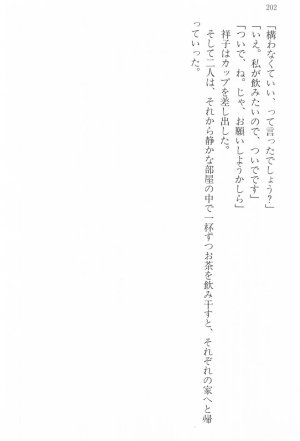 202
「構わなくていい、って言ったでしょう?」
「いえ。私が飲みたいので、ついでです」
「ついで、ね。じゃ、お願いしようかしら」
祥子はカップを差し出した。
そして二人は、それから静かな部屋の中で一杯ずつお茶を飲み干すと、それぞれの家へと帰
っていった。